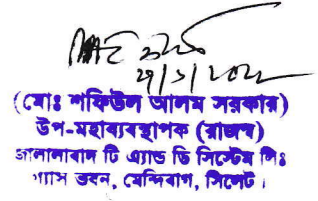 (মোঃ শফিউল আলম সরকার)
উপ-মহাব্যবস্থাপক (রাজস্ব)
জালালাবাদ টি এ্যান্ড ডি সিস্টেম লিঃ
গ্যাস ভবন, মেন্দিবাগ, সিলেট।